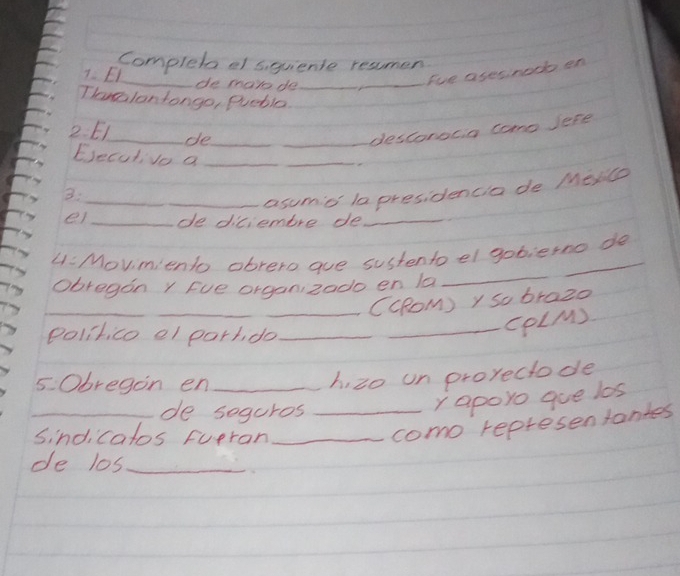 Completa el siguiente resumen
1. El ______ de mayo de ______ ______ fue asesinado en
Tlaxcalantongo, Puebla.
2. El ______ de ______ ______ desconocía como Jefe
Ejecutivo a ______ ______.
3: ______ ______ asumió la presidencia de México
el ______ de diciembre de ______
4: Movimiento obrero que sustento el gobierno de
Obregón y fue organizado en la ______ ______
______ ______ ______ (CROM) y su brazo
político el partido ______ ______ (PLM).
5: Obregón en ______ hizo un proyecto de
______ de seguros ______ y apoyo que los
sindicatos fueran ______ como representantes
de los ______.